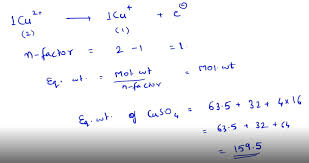 1Cu²⁺ → 1Cu⁺ + e⊖
(2) (1)
n-factor = 2 - 1 = 1
Eq. wt. = Mol wt / n-factor = Mol wt
Eq. wt. of CuSO₄ = 63.5 + 32 + 4×16
= 63.5 + 32 + 64
= 159.5